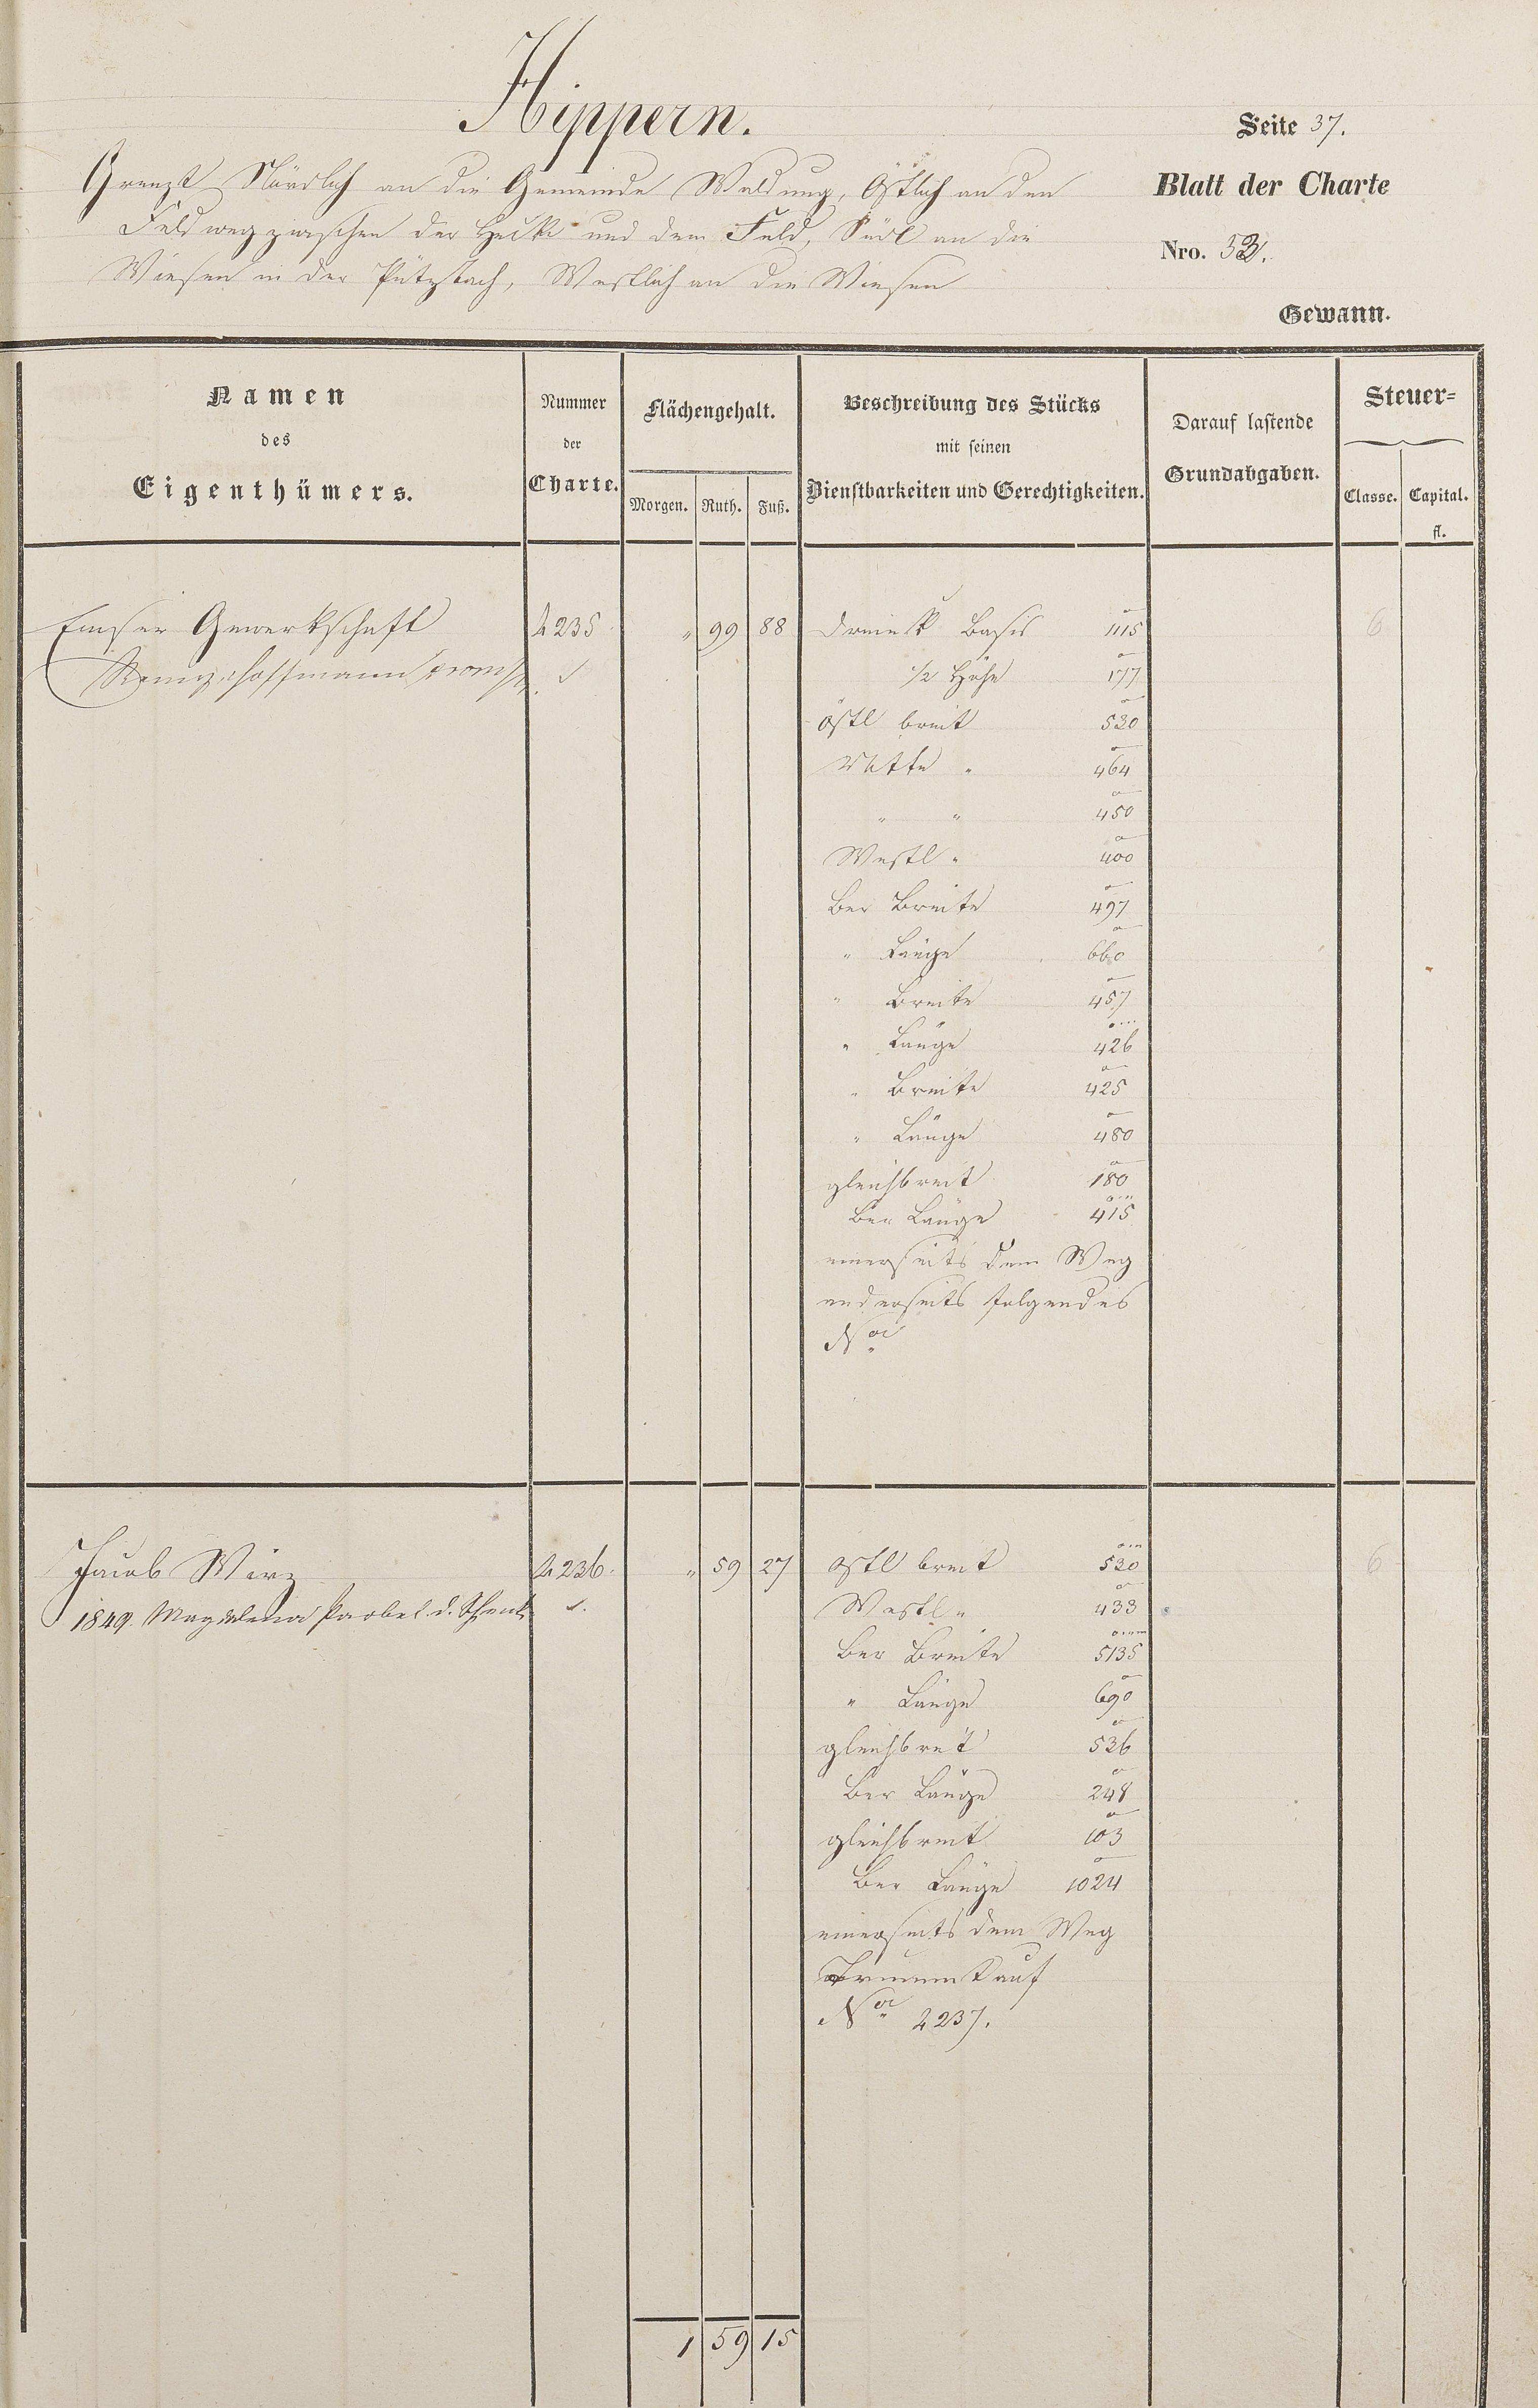 Hippern.
Seite 37.
Grenzt Nördlich an die Gemeinde Waldung, Östlich an den
Blatt der Charte
Feldweg zwischen der Hecke und dem Feld, Südl an die
Nro. 53.
Wiesen in der Pützbach, Westlich an die Wiesen
Gewann.
Namen
des
Eigenthümers.
Nummer
der
Charte.
Flächengehalt.
Morgen. Ruth. Fuß.
Beschreibung des Stücks
mit seinen
Dienstbarkeiten und Gerechtigkeiten.
Darauf lastende
Grundabgaben.
Steuer=
Classe. Capital.
fl.
Emser Gewerkschaft 4235 " 99 88 Dreieck Basis 1115 6
Hoffmann 1/2 Höhe 177
östl breit 530
Mitte " 464
" " 450
Westl " 400
Ber Breite 497
" Länge 660
" Breite 457
" Länge 426
" Breite 425
" Länge 480
gleichbreit 180
Ber Länge 415
einerseits dem Weg
anderseits folgendes
Nro
Jacob Wirz 4236. " 59 27 östl breit 530 6
1849. Magdalena Parbel d. Westl " 433
Ber Breite 5135
" Länge 690
gleichbreit 536
Ber Länge 248
gleichbreit 103
Ber Länge 1024
einerseits dem Weg
auf
Nro 4237.
1 59 15